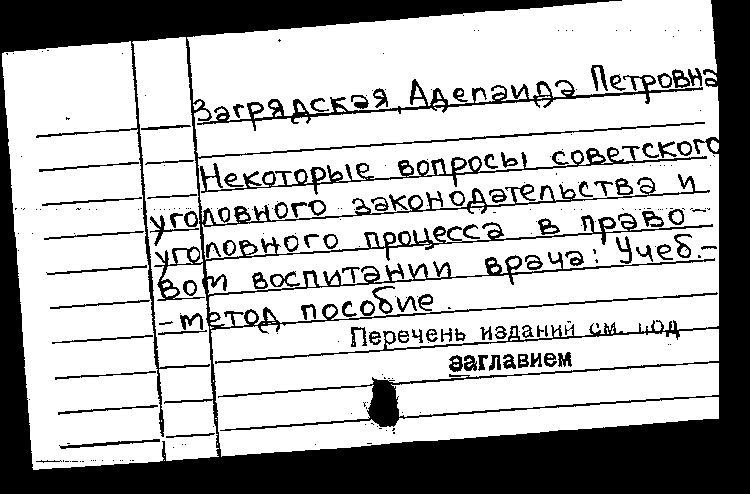 Загрядская, Аделаида Петровна
Некоторые вопросы советского
уголовного законодательства и
уголовного процесса в право-
вом воспитании врача: Учеб.-
-метод. пособие.
Перечень изданий см. под
заглавием